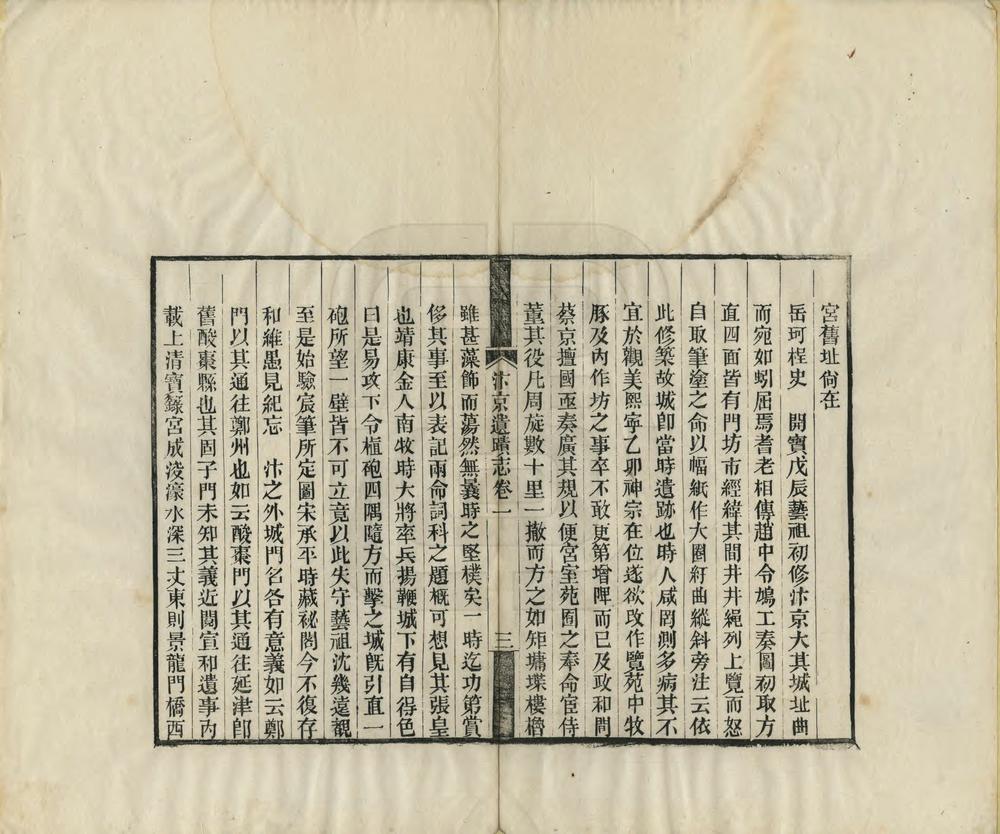 宮舊址尙在
岳珂桯史　開寶戊辰藝祖初修汴京大其城址曲
而宛如蚓屈焉耆老相傳趙中令鳩工奏圖初取方
直四面皆有門坊市經緯其間井井繩列上覽而怒
自取筆塗之命以幅紙作大圈紆曲縱斜旁注云依
此修築故城卽當時遺跡也時人咸罔測多病其不
宜於觀美熙寧乙卯神宗在位遂欲改作覽苑中牧
豚及內作坊之事卒不敢更第增陴而已及政和間
蔡京擅國亟奏廣其規以便宮室苑囿之奉命宦侍
董其役凡周旋數十里一撤而方之如矩墉堞樓櫓
汴京遺蹟志卷一　三
雖甚藻飾而蕩然無曩時之堅樸矣一時迄功第賞
侈其事至以表記兩命詞科之題概可想見其張皇
也靖康金人南牧時大將率兵揚鞭城下有自得色
曰是易攻下令植砲四隅隨方而擊之城旣引直一
砲所望一壁皆不可立竟以此失守藝祖沈幾遠覩
至是始驗宸筆所定圖宋承平時藏祕閣今不復存
和維愚見紀忘　汴之外城門名各有意義如云鄭
門以其通往鄭州也如云酸棗門以其通往延津卽
舊酸棗縣也其固子門未知其義近閱宣和遺事內
載上淸寶籙宮成浚濠水深三丈東則景龍門橋西